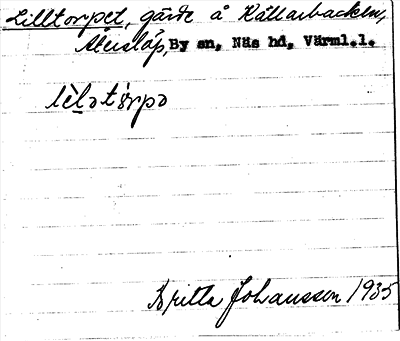 Lilltorpet, gärde å Källarbacken,
By sn, Näs hd, Värml.l.
lìlətórpə
Britta Johansson 1935